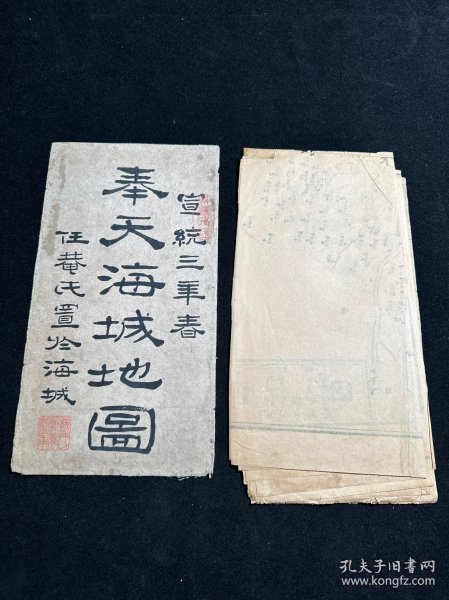 宣統三年春
奉天海城地圖
任菴氏置於海城
孔夫子旧书网
www.kongfz.com